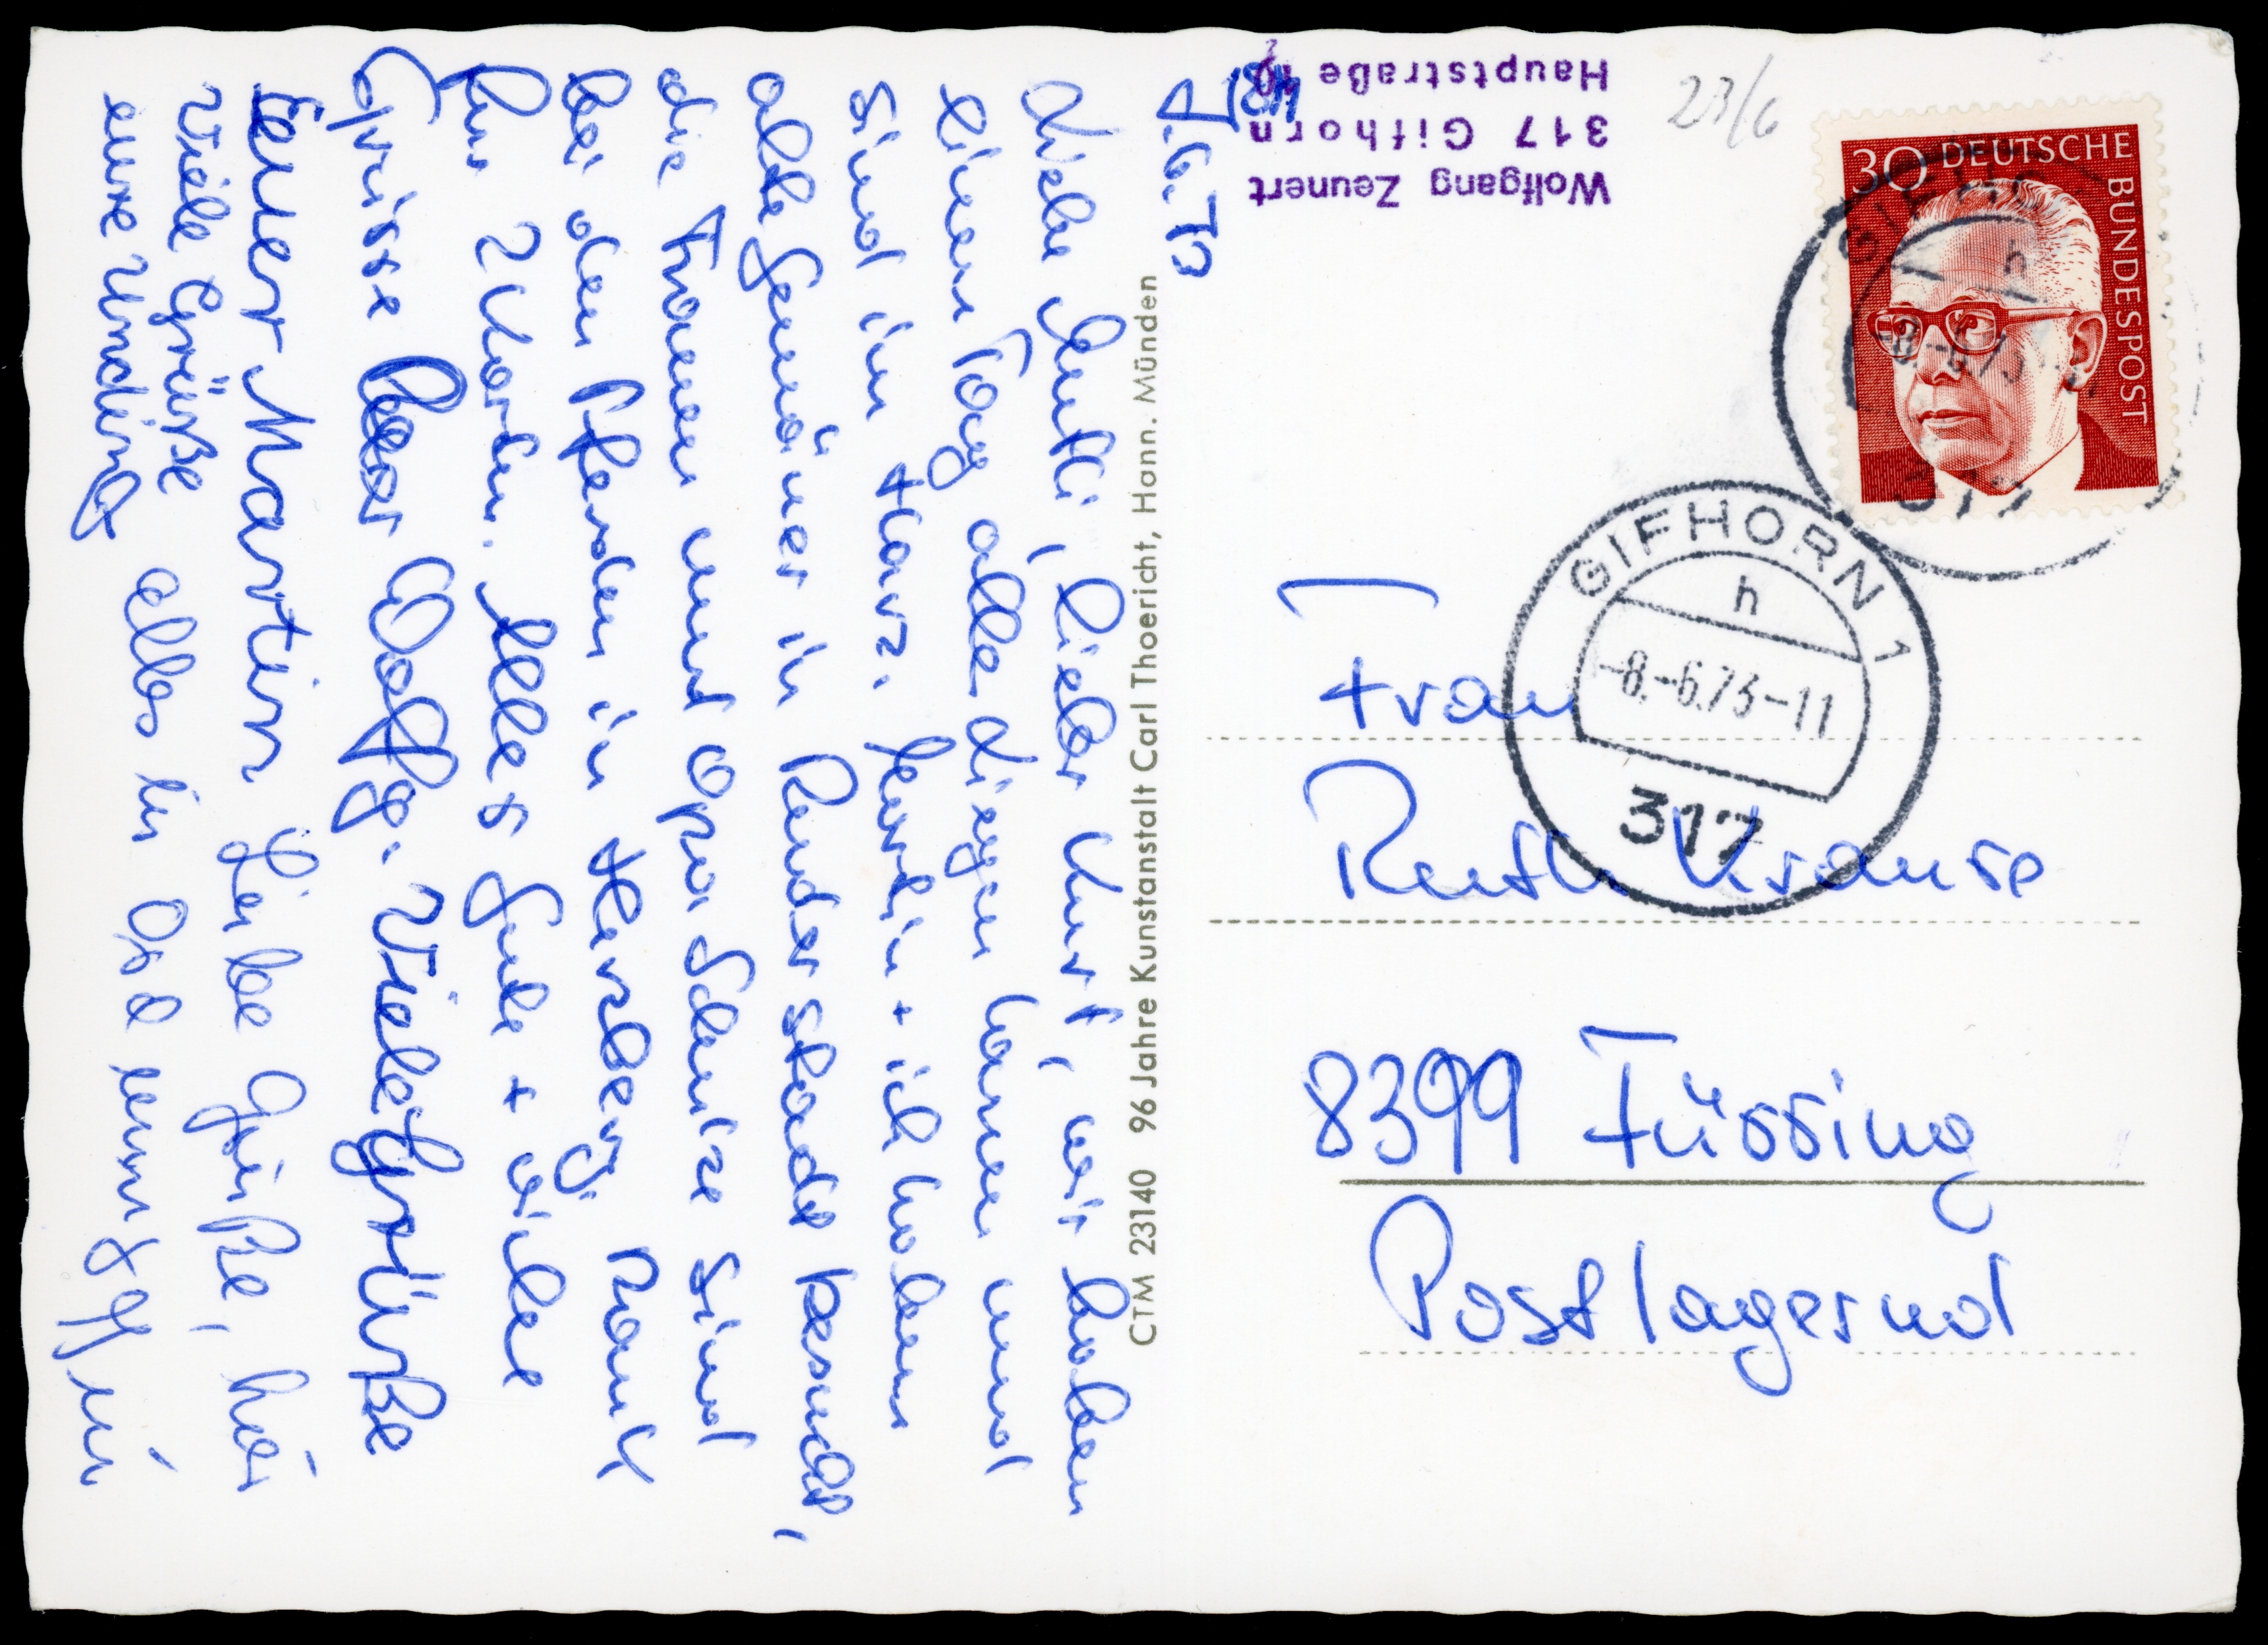 7.6.73
Liebe Mutti, lieber Kurt, wir haben
einen Tag alle Diesen und
sind im Harz. + ich haben
alle Gemäuer in Duderstadt besucht,
die Frauen und Opa Schulze sind
bei den Pferden in Herzberg.
bis Morgen. Alles Gute + viele
Grüsse Euer Wolfg. Viele Grüße
Euer Martin Liebe Grüße,
viele Grüße
eure Undine alles in
Wolfgang Zeunert
317 Gifhorn
Hauptstraße
23/6
30 DEUTSCHE BUNDESPOST
GIFHORN 1
h
-8.-6.73-11
317
Frau
Ruth Krause
8399 Füssing
Postlagernd
CTM 23140 96 Jahre Kunstanstalt Carl Thoericht, Hann. Münden